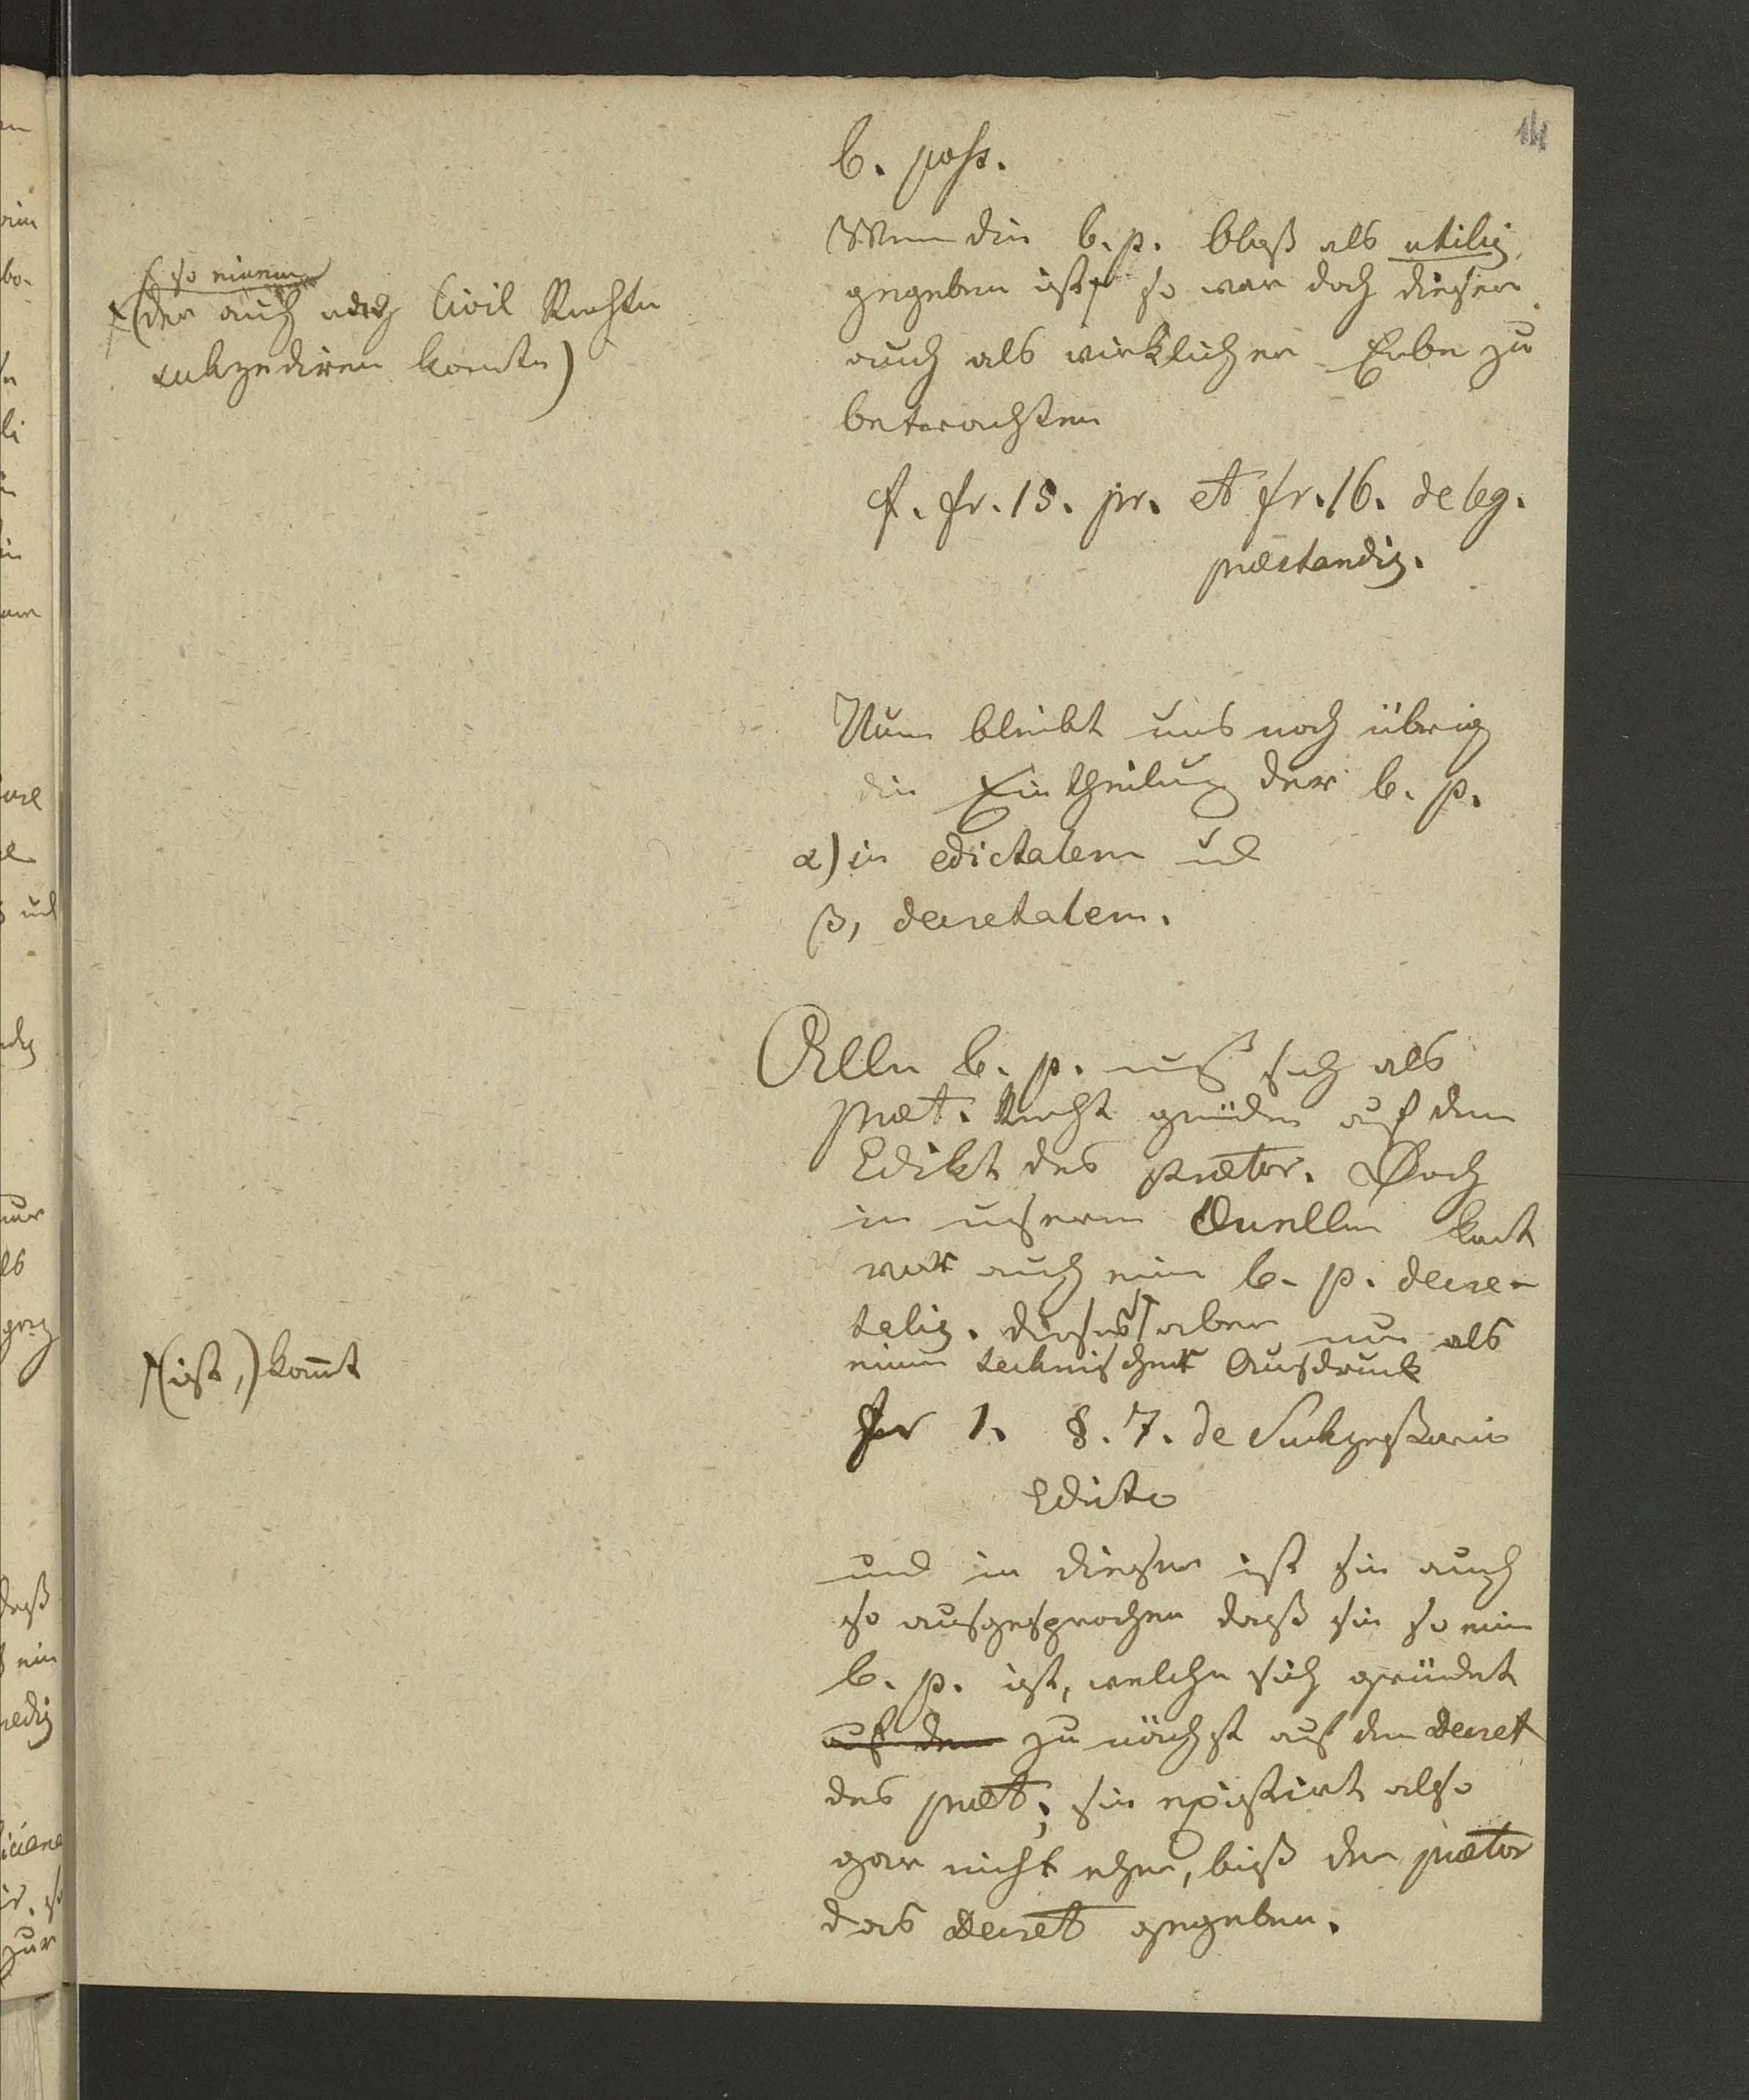 14
b. poss.
Wenn die b. p. bloß als utilis
gegeben ist, so war doch dieser
auch als wirklicher Erbe zu
betrachten
(so einem
(der auch nach Civil Rechte
sukzediren konnte)
cf. fr. 15. pr. et fr. 16. de leg.
præstandis.
Nun bleibt uns noch übrig
die Eintheilung der b. p.
α) in edictalem und
β, decretalem.
Alle b. p. muß sich als
præt. Recht gründen auf dem
Edikt des prætor. Doch
in unseren Quellen
auch eine b. p. decre-
talis. dieses aber nur als
einen technischen Ausdruck
(ist,) kom̅t
fr 1. §. 7. de Sukzessorio
Edicto
und in dieser ist sie auch
so ausgesprochen daß sie so eine
b. p. ist, welche sich gründet
auf dem zu nächst auf dem Decret
des præt; sie existirt also
gar nicht eher, biß der prætor
das Decret gegeben.